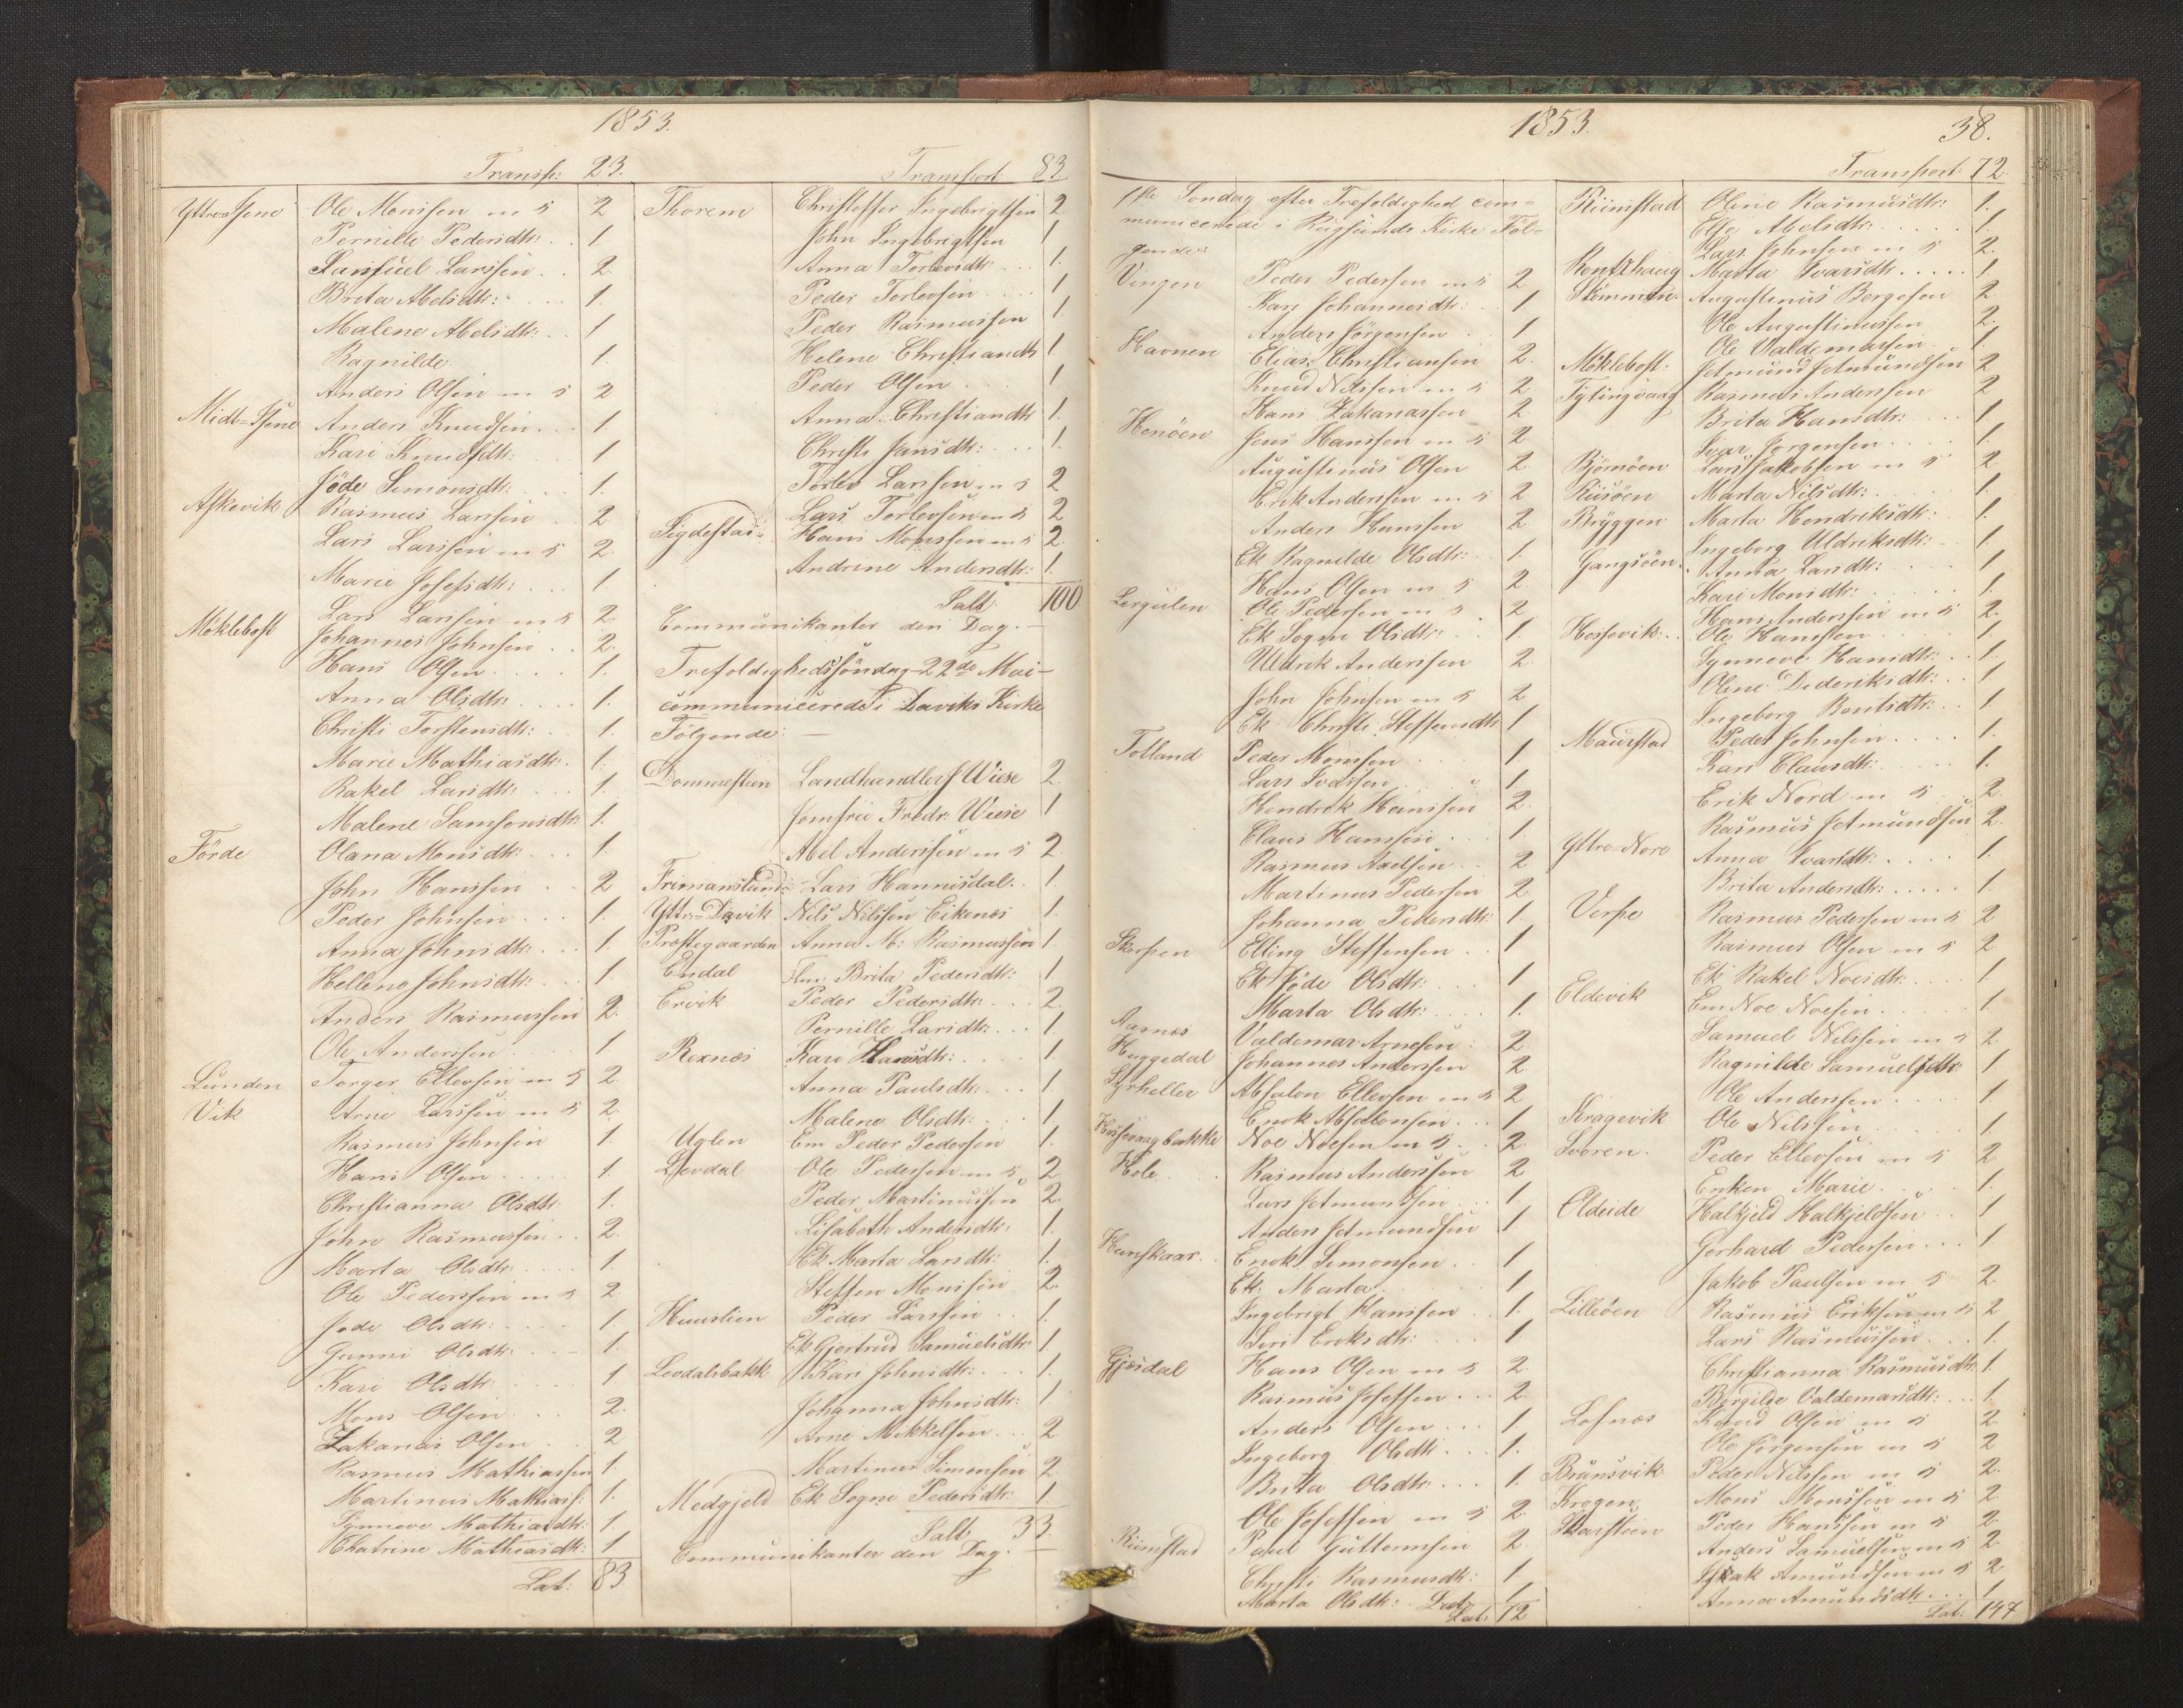 1853.
Transp: 23.
Yttre Hene Ole Monssen m 5 2
Pernille Pedersdtr: 1
Samuel Larssen 2
Brita Abelsdtr: 1.
Malene Abelsdtr: 1
Ragnilde 1.
Anders Olsen m 5 2
Midt-Hene Anders Knudsen 1
Kari Knudsdtr: 1
Jøde Simonsdtr: 1.
Askevik Rasmus Larssen 2
Lars Larssen m 5 2.
Marie Josefsdtr: 1
Möklebost Lars Larssen m 5 2
Johannes Johnsen 2.
Hans Olsen 1.
Anna Olsdtr: 1.
Christi Torstensdtr: 1.
Marie Mathiasdtr. 1.
Rakel Larsdtr: 1.
Malene Samsonsdtr: 1.
Förde Olana Monsdtr: 1.
John Hanssen 2
Peder Johnsen 1.
Anna Johnsdtr: 1.
Hellene Johnsdtr: 1.
Anders Rasmussen 2.
Ole Anderssen 1
Lunden Torger Ellevsen m 5 2
Vik Arne Larssen m 5 2.
Rasmus Johnsen 1.
Hans Olsen 1.
Christianna Olsdtr 1.
John Rasmussen 2.
Marta Olsdtr: 1.
Ole Pederssen m 5 2
Jøde Olsdtr: 1.
Gunni Olsdtr: 1.
Kari Olsdtr: 1
Mons Olsen 2.
Zakarias Olsen 2
Rasmus Mathiassen 1.
Martinus Mathiass: 1.
Synneve Mathiasdtr: 1.
Chatrine Mathiasdtr: 1
Lat: 83
Transport 83
Thorem Christoffer Ingebrigtsen 2.
John Ingebrigtsen 1
Anna Torlevsdtr: 1.
Peder Torlevsen 1
Peder Rasmussen 1.
Helene Christiansdtr 1
Peder Olsen 1
Anna Christiandtr 1.
Christi Jansdtr: 1.
Torlev Larssen m 5 2
Lars Torlevsen m 5 2
Sigdestad: Hans Monssen m 5 2.
Andrine Andersdtr: 1.
Salt: 100
Communikanter den Dag.
Trefoldighedssöndag 22de Mai
communicerede i Daviks Kirke
Følgende:
Dommestein Landhandler J Wiese 2
Jomfru Fredr: Wiese 1
Abel Anderssen m 5 2.
Frimanslund Lars Hannisdal. 1.
Yttre-Davik Nils Nilssen Eikenes 1.
Præstegaarden Anna M: Rasmussen 1.
Endal Brita Pedersdtr: 1
Ervik Peder Pedersdtr: 2.
Pernille Larsdtr: 1.
Rexnes Kari Hansdtr: 1
Anna Paulsdtr: 1.
Malene Olsdtr: 1.
Uglen Em Peder Pedersen 1.
Levdal Ole Pedersen m 5 2
Peder Martinussen 2.
Lisabeth Andersdtr: 1.
Ek Marta Larsdtr: 1.
Steffen Monssen 2.
Hunslien Peder Larssen 1.
Ek Gjertrud Samuelsdtr: 1
Levdalsbakk Kari Johnsdtr: 1.
Johanna Johnsdtr: 1
Arne Mikkelsen 2
Martinus Simonsen 2
Medgjeld Ek Sogni Pedersdtr: 1
Salt 33.
Communikanter den Dag.
1853.
38.
1ste Søndag efter Trefoldighed com=
municerede i Rugsunds Kirke Föl=
gende:
Vingen Peder Pedersen m 5 2
Kari Johannesdtr: 1
Anders Jörgensen 1
Havnen Elias Christiansen 2.
Knud Nilssen m 5 2
Hans Zakariassen 2
Henöen Jens Hanssen m 5 2
Augustinus Olsen 2.
Erik Anderssen m 5 2
Anders Hanssen 2
Ek Ragnilde Olsdtr: 1.
Hans Olsen m 5 2.
Lergulen Ole Pedersen m 5 2
Ek Sogni Olsdtr: 1.
Uldrik Anderssen 2
John Johnsen m 5 2
Ek Christi Steffensdtr 1
Totland Peder Monssen 1
Lars Ivarssen 1.
Hendrik Hanssen 2.
Claus Hanssen 1.
Rasmus Axelsen 2
Martinus Pedersen 2
Johanna Pedersdtr: 1.
Skorpen Elling Steffensen 1
Ek Jøde Olsdtr: 1
Marta Olsdtr: 1.
Aarnes Valdemar Arnesen 2.
Haggedal Johannes Anderssen 2
Styrheller Absalon Ellevsen m 5 2
Enok Absalonsen 1
Husevaagbakke Noe Noesen m 5 2.
Hole Rasmus Anderssen 2
Lars Jetmundsen 1
Anders Jetmundsen 1
Hunskaar Enok Simonsen 1
Ek: Marta 1
Ingebrigt Hanssen 1.
Siri Eriksdtr: 1
Gjesdal Hans Olsen m 5 2.
Rasmus Josefsen 2.
Anders Olsen 1.
Ingeborg Olsdtr: 1.
Brita Olsdtr: 1.
Ole Josefsen m 5 2.
Riimstad Paul Guttormsen 2
Christi Rasmusdtr: 1
Marta Olsdtr: 1
Lat: 72
Transport 72
Riimstad Oline Rasmusdtr: 1.
Else Abelsdtr: 1.
Lars Johnsen m 5 2.
Rentzhaug Marta Ivarsdtr: 1
Skommen Augustinus Börgesen 2
Ole Augustinussen 2.
Ole Valdemarsen 1.
Möklebost: Jetmund Jetmundsen 2
Tytingvaag Rasmus Anderssen 2
Brita Hansdtr: 1
Ivar Jörgensen 1.
Björnöen Lars Jakobsen m 5 2
Risöen Marta Nilsdtr: 1.
Bryggen Marta Hendriksdtr: 1.
Ingeborg Uldriksdtr: 1
Gangsöen Anna Larsdtr: 1
Kari Monsdtr: 1.
Hans Anderssen m 5 2.
Hessevik: Ole Hanssen 1.
Synneve Hansdtr: 1.
Oline Didriksdtr: 1
Ingeborg Bentsdtr: 1
Maurstad Peder Johnsen 1.
Kari Clausdtr: 1.
Erik Nord m 5 2.
Rasmus Jetmundsen 2.
Yttre-Nore Anna Ivarsdtr: 1.
Brita Andersdtr: 1.
Verpe Rasmus Pedersen m 5 2
Rasmus Olsen m 5 2
Ek Rakel Noesdtr: 1
Eldevik Em Noe Noesen 1
Samuel Nilssen m 5 2
Ragnilde Samuelsdtr 1
Ole Anderssen 1.
Kragevik Ole Nilssen 1.
Svoren. Peder Ellevsen m 5 2
Enken Marie 1.
Oldeide Halkjeld Halkjeldsen 1
Gerhard Pedersen 1
Jakob Paulsen m 5 2
Lilleöen Rasmus Eriksen m 5 2
Lars Rasmussen 1.
Christianna Rasmusdtr: 1.
Börgilde Valdemarsdtr: 1.
Lofnes Knud Olsen m 5 2
Ole Jörgensen m 5 2
Brunsvik Peder Nilssen m 5 2.
Krogen Mons Monssen m 5 2
Skarstein Peder Hanssen m 5 2.
Anders Samuelsen m 5 2.
Isak Amundsen m 5 2
Anna Amundsdtr: 1
Lat: 147